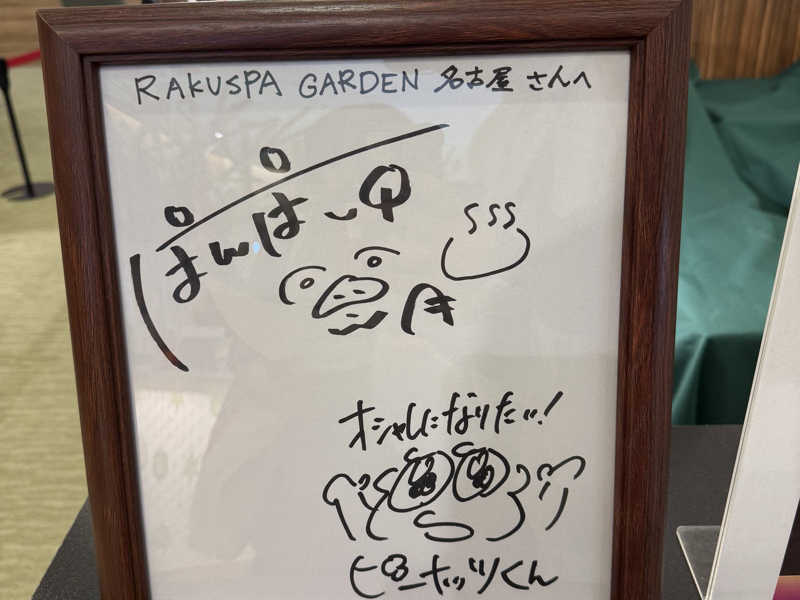 RAKUSPA GARDEN 名古屋 さんへ
ぽんぽこ
オシャレになりたい!
ピーナッツくん